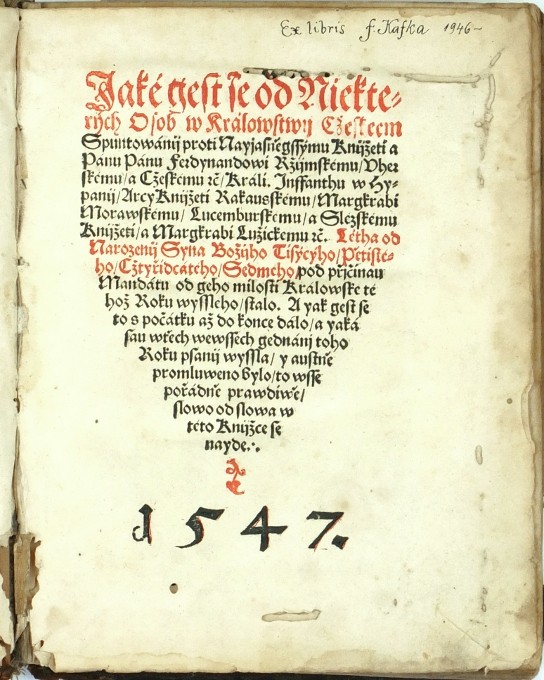 Ex libris f. Kafka 1946 –
Jaké gest se od Niekte-
rých Osob w Králowstwij Cžeskeem
Spuntowánij proti Nayjasněgssýmu Knijžeti a
Panu Pánu Ferdynandowi Ržijmskému/ Vher
skému/ a Cžeskemu ꝛč/ Králi. Inffanthu w Hy-
panij/ Arcy Knijžeti Rakauskému/ Margkrabi
Morawskému/ Lucemburskému/ a Slezskému
Knijžeti/ a Margkrabi Lužickemu ꝛč. Létha od
Narozenij Syna Božijho Tisýcyho/ Pětisté-
ho/ Cžtyřidcátého/ Sedmeho/ pod přjčinau
Mandátu od geho milosti Králowske té
hož Roku wyssleho/ stalo. A yak gest se
to s počátku až do konce dálo/ a yaká
sau wssech wewssech gednánj toho
Roku psanij wyssla/ y austně
promluweno bylo/ to wsse
pořádně prawdiwě/
slowo od slowa w
této Knijžce se
nayde.
1547.